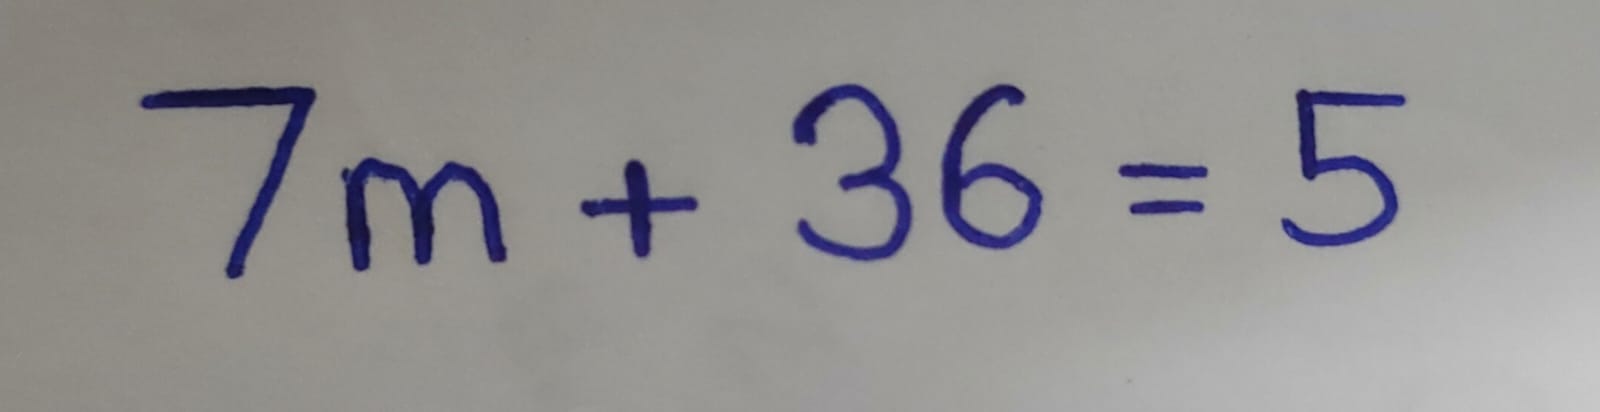 7m + 36 = 5